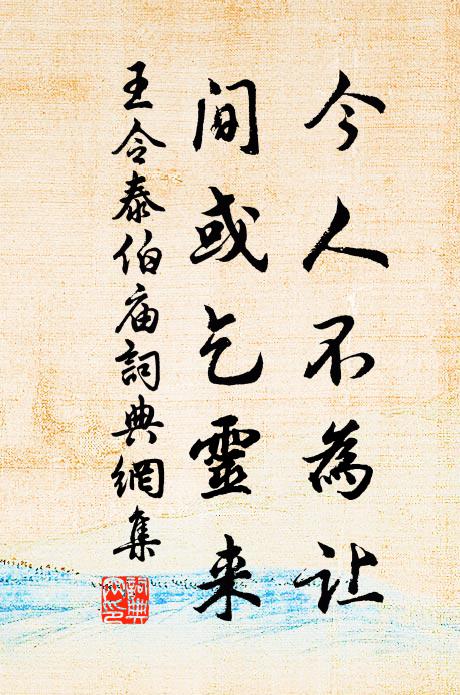 今人不為让
间或乞靈来
王令泰伯庙詞典網集